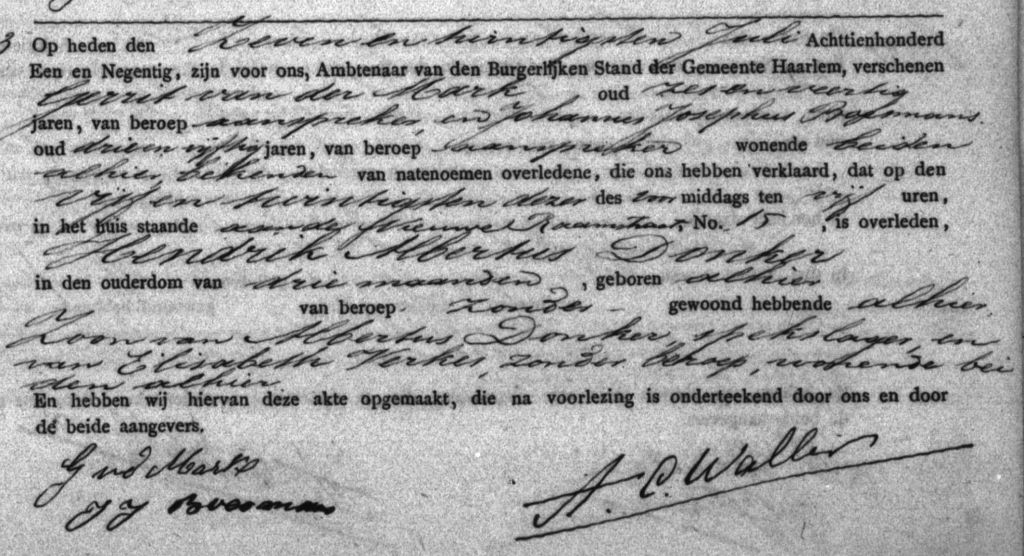 3 Op heden den Zeven en twintigsten Juli Achttienhonderd
Een en Negentig, zijn voor ons, Ambtenaar van den Burgerlijken Stand der Gemeente Haarlem, verschenen
Gerrit van der Mark oud zes en veertig
jaren, van beroep aanspreker, en Johannes Josephus Bosmans
oud drie en vijftig jaren, van beroep aanspreker wonende beiden
alhier, bekenden van natenoemen overledene, die ons hebben verklaard, dat op den
Vijf en twintigsten dezer des voor middags ten vijf uren,
in het huis staande aan de Nieuwe Raamstraat No. 15, is overleden,
Hendrik Albertus Donker
in den ouderdom van drie maanden, geboren alhier
van beroep zonder gewoond hebbende alhier,
Zoon van Albertus Donker, spekslager, en
van Elisabeth Verkes, zonder beroep, wonende bei
den alhier.
En hebben wij hiervan deze akte opgemaakt, die na voorlezing is onderteekend door ons en door
de beide aangevers.
G vd Mark
J J Bosmans
A. C. Waller